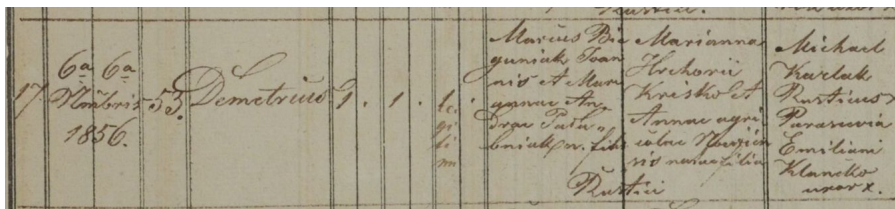 17
6a 6a
Nmbris
1856.
53.
Demetrius
1. 1.
le
gi
ti
mi
Marcus Bie
guniak Joan
nis et Mari
annae An
drae
bniak n. fili
Rustici
Marianna
Hrehorii
Krisko et
Annae agri
colae
sis nata filia
Michael
Karlak
Rusticus
Parascevia
Emiliani
Klaczko
uxor.